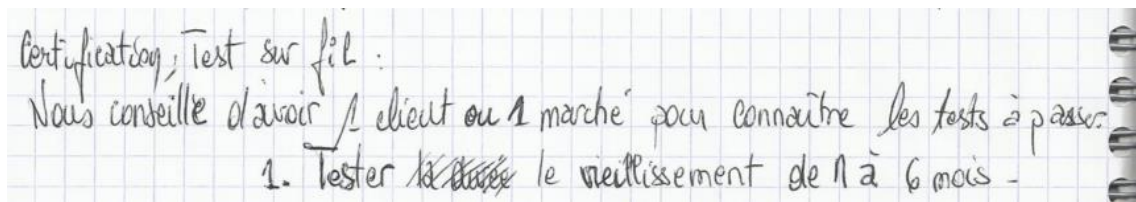 Certification, Test sur fil :
Nous conseille d'avoir 1 client ou 1 marché pour connaître les tests à passer.
1. Tester le vieillissement de 1 à 6 mois -